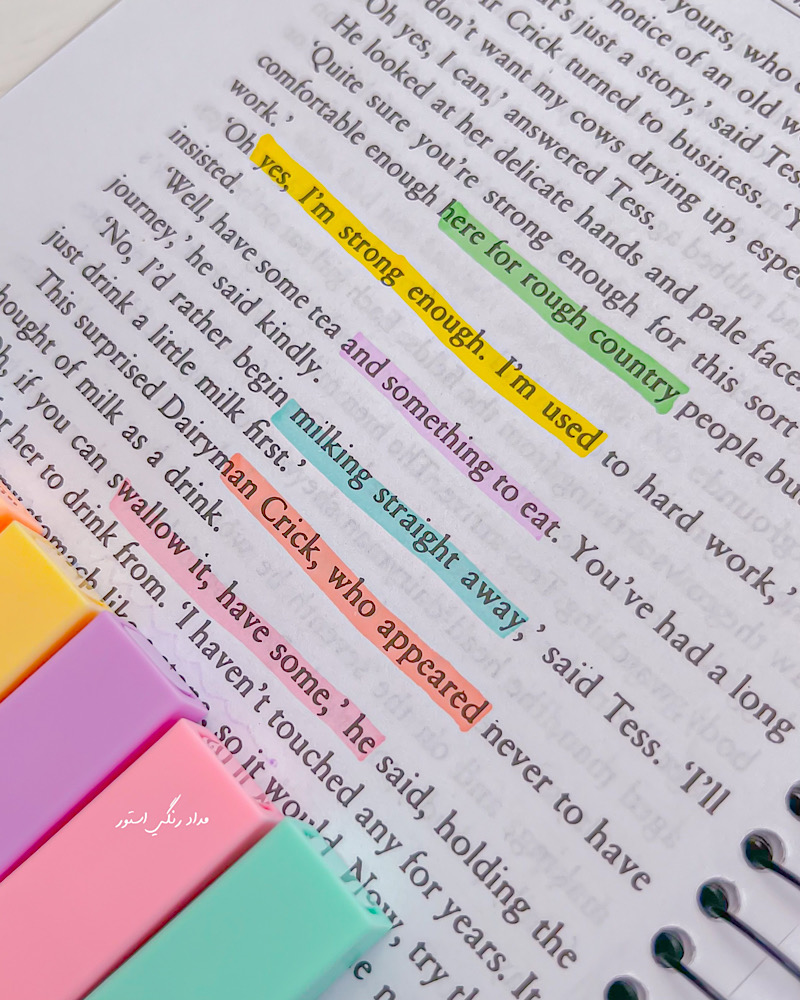 yours, who
notice of an old
's just a story,' said Tess
Crick turned to business. 'Y
don't want my cows drying up, espe
'Oh yes, I can,' answered Tess.
He looked at her delicate hands and pale face
'Quite sure you're strong enough for this sort
comfortable enough here for rough country people bu
work.'
'Oh yes, I'm strong enough. I'm used to hard work,'
insisted.
'Well, have some tea and something to eat. You've had a long
journey,' he said kindly.
'No, I'd rather begin milking straight away,' said Tess. 'I'll
just drink a little milk first.'
This surprised Dairyman Crick, who appeared never to have
hought of milk as a drink.
h, if you can swallow it, have some,' he said, holding the
or her to drink from. 'I haven't touched any for years. It
stomach like
so it would
Now, try th
مداد رنگي استور